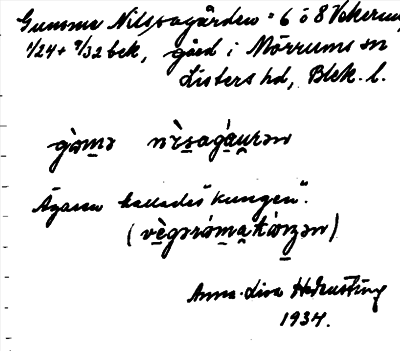 Gumme Nilsagården = 6 o 8 Vekerum,
1/24 + 9/32 bek, gård i Mörrums sn
Listers hd, Blek. l.
gòmə nìsagáurən
Ägaren kallades "kungen".
(vègərómakóŋən)
Anna-Lisa
1934.